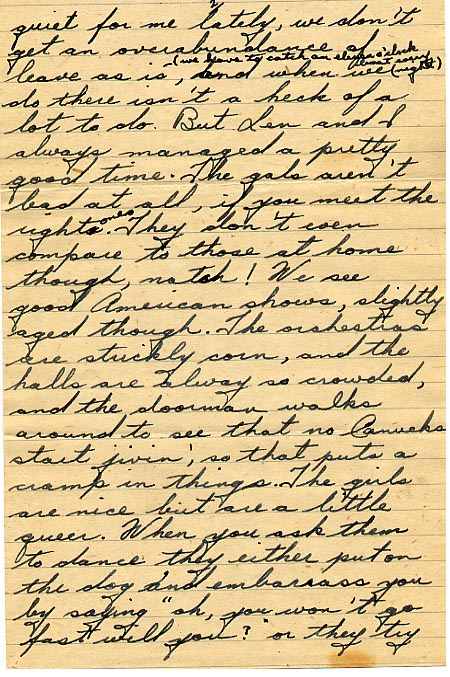 quiet for me lately, we don't
get an overabundance of
(we have to catch an eleven o'clock
leave as is, and when we
boat every night)
do there isn't a heck of a
lot to do. But Len and I
always managed a pretty
good time. The gals aren't
bad at all, if you meet the
right ones. They don't even
compare to those at home
though, natch! We see
good American shows, slightly
aged though. The orchestras
are strickly corn, and the
halls are alway so crowded,
and the doorman walks
around to see that no Canucks
start jivin', so that puts a
cramp in things. The girls
are nice but are a little
queer. When you ask them
to dance they either put on
the dog and embarrass you
by saying "oh, you won't go
fast will you?" or they try